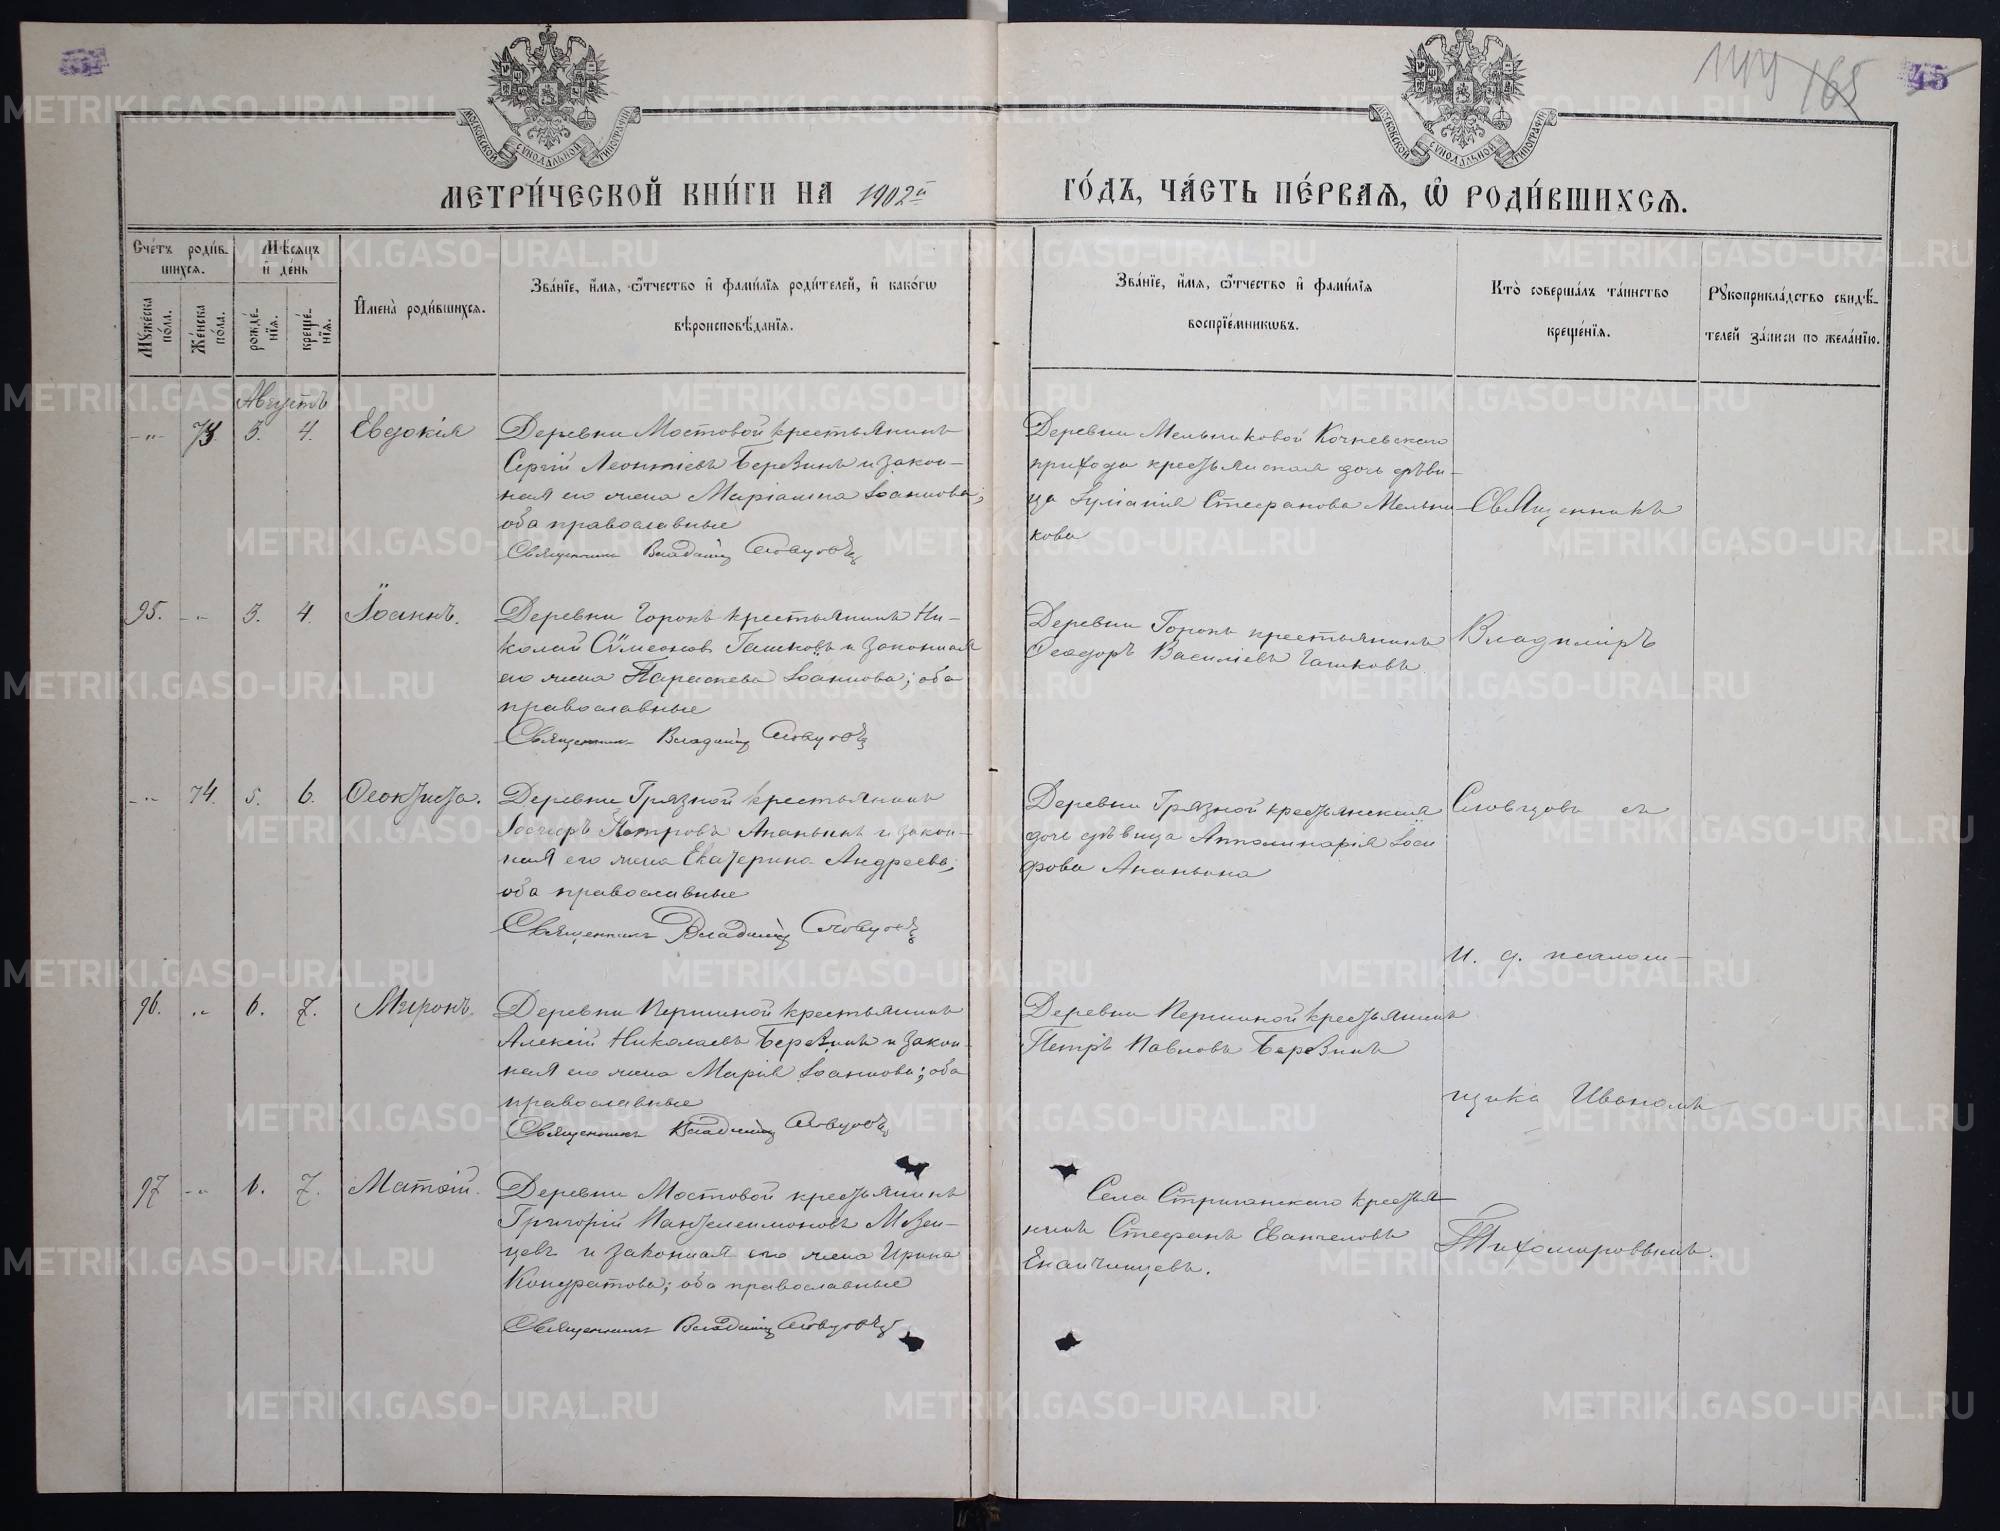 144 165 45
МОСКОВСКОЙ СѴНОДАЛЬНОЙ ТИПОГРАФІИ
МОСКОВСКОЙ СѴНОДАЛЬНОЙ ТИПОГРАФІИ
МЕТРИ́ЧЕСКОЙ КНИ́ГИ НА 1902й ГО́ДЪ, ЧА́СТЬ ПЕ́РВАЯ, Ѽ РОДИ́ВШИХСЯ.
Сче́тъ роди́в-
шихся.
Мѣ́сяцъ
и҆ де́нь
Мꙋ́жеска
по́ла.
Же́нска
по́ла.
рожде́-
нїя.
креще́-
нїя.
И҆мена̀ роди́вшихся.
Зва́нїе, и҆́мя, ѻ҆́тчество и҆ фами́лїя роди́телей, и҆ како́гѡ
вѣроисповѣ́данїя.
Зва́нїе, и҆́мя, ѻ҆́тчество и҆ фами́лїя
воспрїе́мникѡвъ.
Кто̀ соверша́лъ та́инство
креще́нїя.
Рꙋкоприкла́дство свидѣ́-
телей за́писи по жела́нїю.
Августъ
-"- 73 3. 4. Евдокія
Деревни Мостовой крестьянинъ
Сергій Леонтіевъ Березинъ и закон-
ная его жена Маріамна Іоаннова;
оба православные
Священникъ Владиміръ Словцовъ
Деревни Мельниковой Кочневскаго
прихода крестьянская дочь дѣви-
ца Іуліанія Стефанова Мельни-
кова
95. -"- 3. 4. Іоаннъ.
Деревни Горокъ крестьянинъ Ни-
колай Сѵмеоновъ Гашковъ и законная
его жена Параскева Іоаннова; оба
православные
Священникъ Владиміръ Словцовъ
Деревни Горокъ крестьянинъ
Ѳеодоръ Василіевъ Гашковъ
-"- 74. 5. 6. Ѳеоктиста.
Деревни Грязной крестьянинъ
Петровъ Ананьинъ и закон-
ная его жена Екатерина Андреева;
оба православные
Священникъ Владиміръ Словцовъ
Деревни Грязной крестьянская
дочь дѣвица Апполинарія Іоси
фова Ананьина
96. -"- 6. 7. Миронъ.
Деревни Першиной крестьянинъ
Алексій Николаевъ Березинъ и закон-
ная его жена Марія Іоаннова; оба
православные
Священникъ Владиміръ Словцовъ
Деревни Першиной крестьянинъ
Петръ Павловъ Березинъ
97 -"- 6. 7. Матѳій.
Деревни Мостовой крестьянинъ
Григорій Пантелеимоновъ Мезен-
цевъ и законная его жена Ирина
Кондратова; оба православные
Священникъ Владиміръ Словцовъ
Села Стриганскаго крестья-
нинъ Стефанъ Евангеловъ
Епанчинцевъ.
Священникъ
Владиміръ
Словцовъ съ
и. д. псалом-
щика Иваномъ
Тихомировымъ.
METRIKI.GASO-URAL.RU